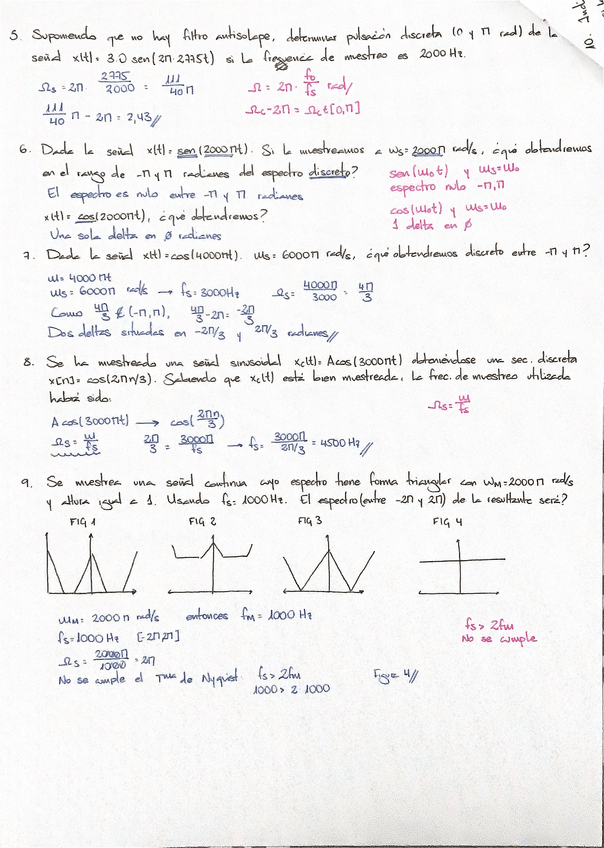 5. Suponiendo que no hay filtro antisolape, determinar pulsación discreta (0 y π rad) de la
señal x(t)= 3.0 sen(2π·2775t) si la frecuencia de muestreo es 2000 Hz.
Ωs = 2π· 2775/2000 = 111/40 π
Ω = 2π· fo/fs rad/
111/40 π - 2π = 2,43//
Ωc-2π = Ωct[0,π]
6. Dada la señal x(t)= sen(2000πt). Si la muestreamos a ωs= 2000π rad/s, ¿qué obtendremos
en el rango de -π y π radianes del espectro discreto?
sen(ωot) y ωs=ωo
El espectro es nulo entre -π y π radianes
espectro nulo -π,π
x(t)= cos(2000πt), ¿qué obtendremos?
cos(ωot) y ωs=ωo
Una sola delta en ∅ radianes
1 delta en ∅
7. Dada la señal x(t)=cos(4000πt). ωs= 6000π rad/s, ¿qué obtendremos discreto entre -π y π?
ω= 4000πt
ωs= 6000π rad/s → fs= 3000Hz Ωs = 4000π/3000 = 4π/3
Como 4π/3 ∉ (-π,π), 4π/3 -2π= -2π/3
Dos deltas situadas en -2π/3 y 2π/3 radianes//
8. Se ha muestreado una señal sinusoidal xc(t)= Acos(3000πt) obteniéndose una sec. discreta
x[n]= cos(2πn/3). Sabiendo que xc(t) está bien muestreada, la frec. de muestreo utilizada
habrá sido:
Ωs= ω/fs
Acos(3000πt) → cos(2πn/3)
Ωs = ω/fs 2π/3 = 3000π/fs → fs= 3000π/2π/3 = 4500 Hz//
9. Se muestrea una señal continua cuyo espectro tiene forma triangular con ωM=2000π rad/s
y altura igual a 1. Usando fs= 1000Hz. El espectro (entre -2π y 2π) de la resultante será?
FIG 1 FIG 2 FIG 3 FIG 4
ωM= 2000π rad/s entonces fM= 1000 Hz
fs=1000 Hz [-2π,2π]
fs> 2fm
No se cumple
Ωs = 2000π/1000 = 2π
No se cumple el Tma de Nyquist fs>2fm
1000> 2·1000
Figura 4//